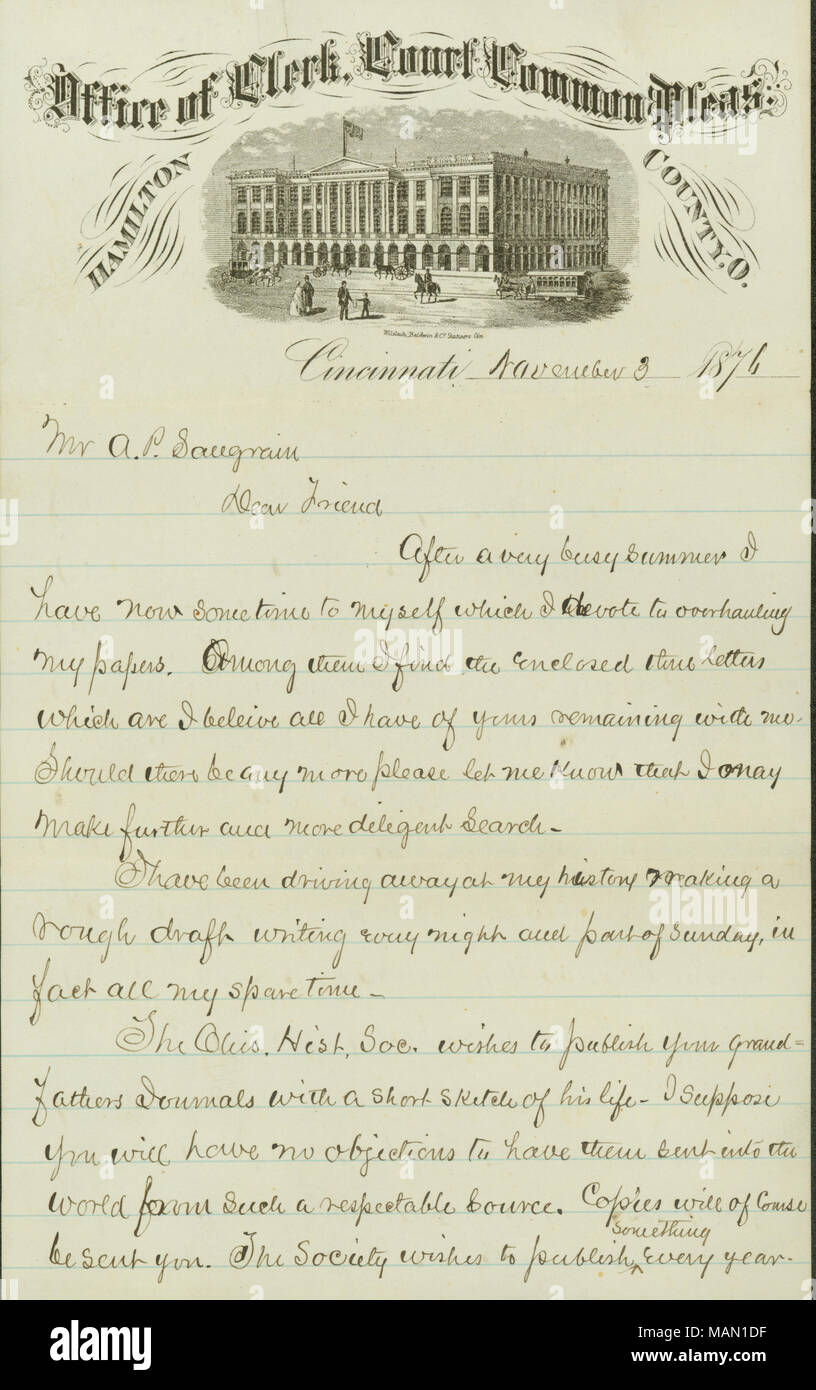 Office of Clerk, Court Common Pleas.
HAMILTON COUNTY, O.
Wilstach, Baldwin & Co. Stationers Cin.
Cincinnati, November 3 1876
Mr A. P. Saugrain
Dear Friend
After a very busy summer I
have now some time to myself which I devote to overhauling
my papers. Among them I find the enclosed three letters
which are I beleive all I have of yours remaining with me.
Should there be any more please let me know that I may
make further and more diligent search -
I have been driving away at my history making a
rough draft writing every night and part of Sunday, in
fact all my spare time -
The Ohio. Hist, Soc. wishes to publish your Grand=
fathers Journals with a short sketch of his life - I suppose
you will have no objections to have them sent into the
world from such a respectable source. Copies will of course
be sent you. The Society wishes to publish ^something every year.
alamy
alamy
alamy
Image ID: MAN1DF
www.alamy.com